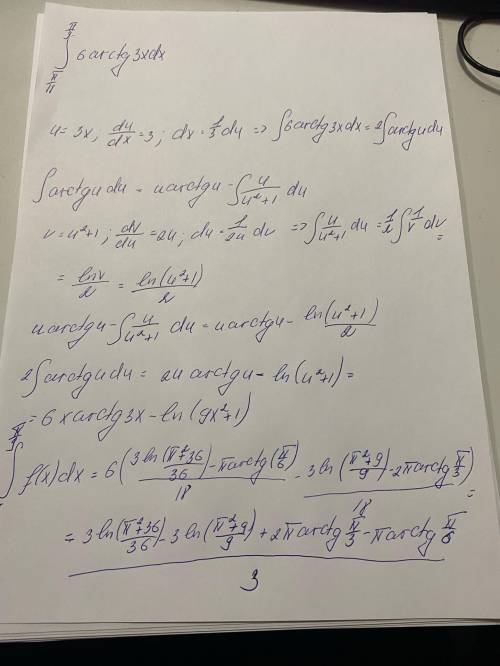 ∫ 6 arctg 3x dx
u = 3x; du/dx = 3; dx = 1/3 du => ∫6 arctg 3x dx = 2∫arctg u du
∫ arctg u du = u arctg u - ∫ u/(u²+1) du
v = u²+1; dv/du = 2u; du = 1/2u dv => ∫ u/(u²+1) du = 1/2 ∫ 1/v dv =
= ln v/2 = ln(u²+1)/2
u arctg u - ∫ u/(u²+1) du = u arctg u - ln(u²+1)/2
2∫ arctg u du = 2u arctg u - ln(u²+1) =
= 6x arctg 3x - ln(9x²+1)
∫ f(x)dx = 6( (3 ln((π²+36)/36) - π arctg(π/6))/18 - (3 ln((π²+9)/9) - 2π arctg π/3)/18 ) =
= (3 ln((π²+36)/36) - 3 ln((π²+9)/9) + 2π arctg π/3 - π arctg π/6)/3